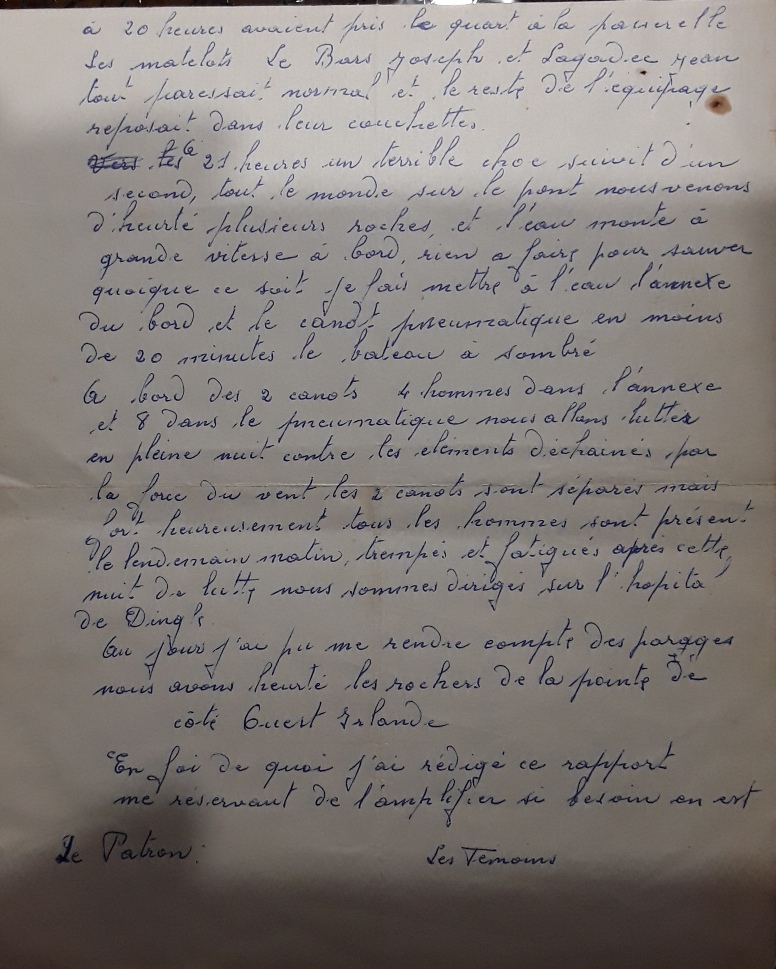 à 20 heures avaient pris le quart à la passerelle
Les matelots Le Bars Joseph et Lagadec Jean
tout paressait normal et le reste de l'équipage
reposait dans leur couchettes.
Vers les 21 heures un terrible choc suivit d'un
second, tout le monde sur le pont nous venons
d'heurté plusieurs roches, et l'eau monte à
grande vitesse à bord, rien a faire pour sauver
quoique ce soit je fais mettre à l'eau l'annexe
du bord et le canot pneumatique en moins
de 20 minutes le bateau à sombré
A bord des 2 canots 4 hommes dans l'annexe
et 8 dans le pneumatique nous allons lutter
en pleine nuit contre les eléments déchainés par
la force du vent les 2 canots sont séparés mais
fort heureusement tous les hommes sont présent
le lendemain matin, trempés et fatigués après cette
nuit de lutte nous sommes dirigés sur l'hopital
de Dingle
Au jour j'ai pu me rendre compte des parages
nous avons heurté les rochers de la pointe de
côté Ouest Irlande
En foi de quoi j'ai rédigé ce rapport
me réservant de l'amplifier si besoin en est
Le Patron: Les Temoins